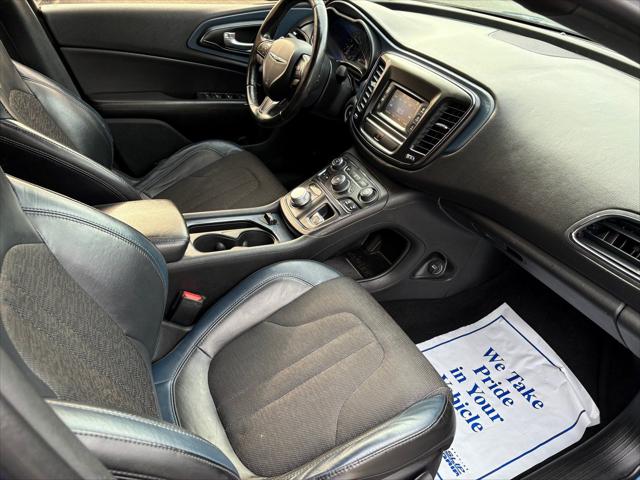 We Take
Pride
in Your
Vehicle